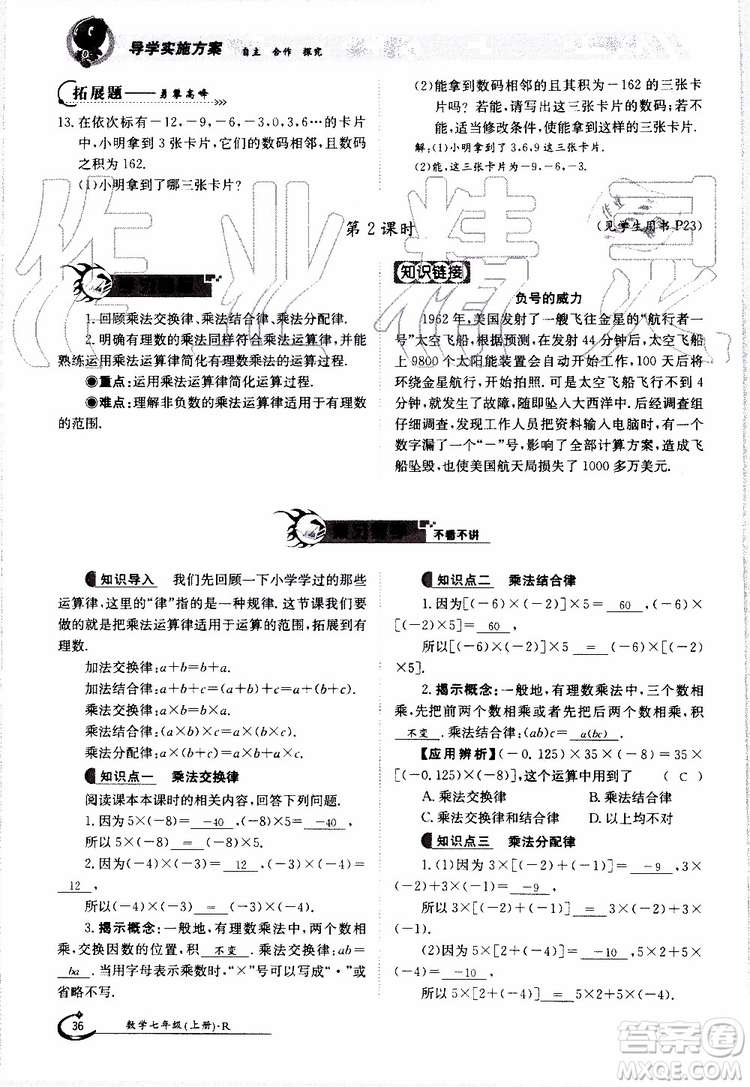 导学实施方案 自主 合作 探究
拓展题——勇攀高峰
13. 在依次标有－12,－9,－6,－3,0,3,6…的卡片
中,小明拿到 3 张卡片,它们的数码相邻,且数码
之积为 162.
(1)小明拿到了哪三张卡片?
(2)能拿到数码相邻且其积为－162 的三张卡
片吗? 若能,请写出这三张卡片的数码;若不
能,适当修改条件,使其能够成功.
解:(1)小明拿到了 3,6,9 这三张卡片.
(2)能,这三张卡片为－9,－6,－3.
第 2 课时
(见学生用书 P23)
1. 回顾乘法交换律、乘法结合律、乘法分配律.
2. 明确有理数的乘法同样符合乘法运算律,并能
熟练运用乘法运算律简化有理数乘法的运算过程.
◉重点:运用乘法运算律简化运算过程.
◉难点:理解非负数的乘法运算律适用于有理数
的范围.
知识链接
负号的威力
1962 年,美国发射了一艘飞往金星的“航行者一
号”太空飞船,根据预测,在发射 44 分钟后,太空飞船
上 9800 个太阳能装置会自动开始工作,100 天后将
环绕金星航行,开始拍照,可是太空飞船飞行不到 4
分钟,就发生了故障,随即坠入大西洋中.后经调查组
仔细调查,发现工作人员把资料输入电脑时,有一个
数字漏了一“－”号,影响了全部计算方案,造成飞
船坠毁,使美国航天局损失了 1000 多万美元.
不看不讲
知识导入 我们先回顾一下小学学过的那些
运算律,这里的“律”指的是一种规律.这节课我们要
做的就是把乘法运算律适用于运算的范围,拓展到有
理数.
加法交换律:a＋b＝b＋a.
加法结合律:a＋b＋c＝(a＋b)＋c＝a＋(b＋c).
乘法交换律:a×b＝b×a.
乘法结合律:(a×b)×c＝a×(b×c).
乘法分配律:a×(b＋c)＝a×b＋a×c.
知识点一 乘法交换律
阅读课本本课时的相关内容,回答下列问题.
1. 因为 5×(－8)＝ －40 ,(－8)×5＝ －40 ,
所以 5×(－8) ＝ (－8)×5.
2. 因为(－4)×(－3)＝ 12 ,(－3)×(－4)＝
12 ,
所以(－4)×(－3) ＝ (－3)×(－4).
3. 揭示概念:一般地,有理数乘法中,两个数相
乘,交换因数的位置,积 不变 .乘法交换律:ab＝
ba .当用字母表示乘数时,“×”号可以写成“·”或
省略不写.
知识点二 乘法结合律
1. 因为[(－6)×(－2)]×5＝ 60 ,(－6)×
[(－2)×5]＝ 60 ,
所以[(－6)×(－2)]×5 ＝ (－6)×[(－2)
×5].
2. 揭示概念:一般地,有理数乘法中,三个数相
乘,先把前两个数相乘,或者先把后两个数相乘,积
不变 .乘法结合律:(ab)c＝ a(bc) .
【应用辨析】(－0.125)×35×(－8)＝35×
[(－0.125)×(－8)],这个运算中用到了 ( C )
A. 乘法交换律 B. 乘法结合律
C. 乘法交换律和结合律 D. 以上均不对
知识点三 乘法分配律
1. (1)因为 3×[(－2)＋(－1)]＝ －9 ,3×
(－2)＋3×(－1)＝ －9 ,
所以 3×[(－2)＋(－1)] ＝ 3×(－2)＋3×
(－1).
(2)因为 5×[2＋(－4)]＝ －10 ,5×2＋5×
(－4)＝ －10 ,
所以 5×[2＋(－4)] ＝ 5×2＋5×(－4).
36 数学七年级(上册)·R